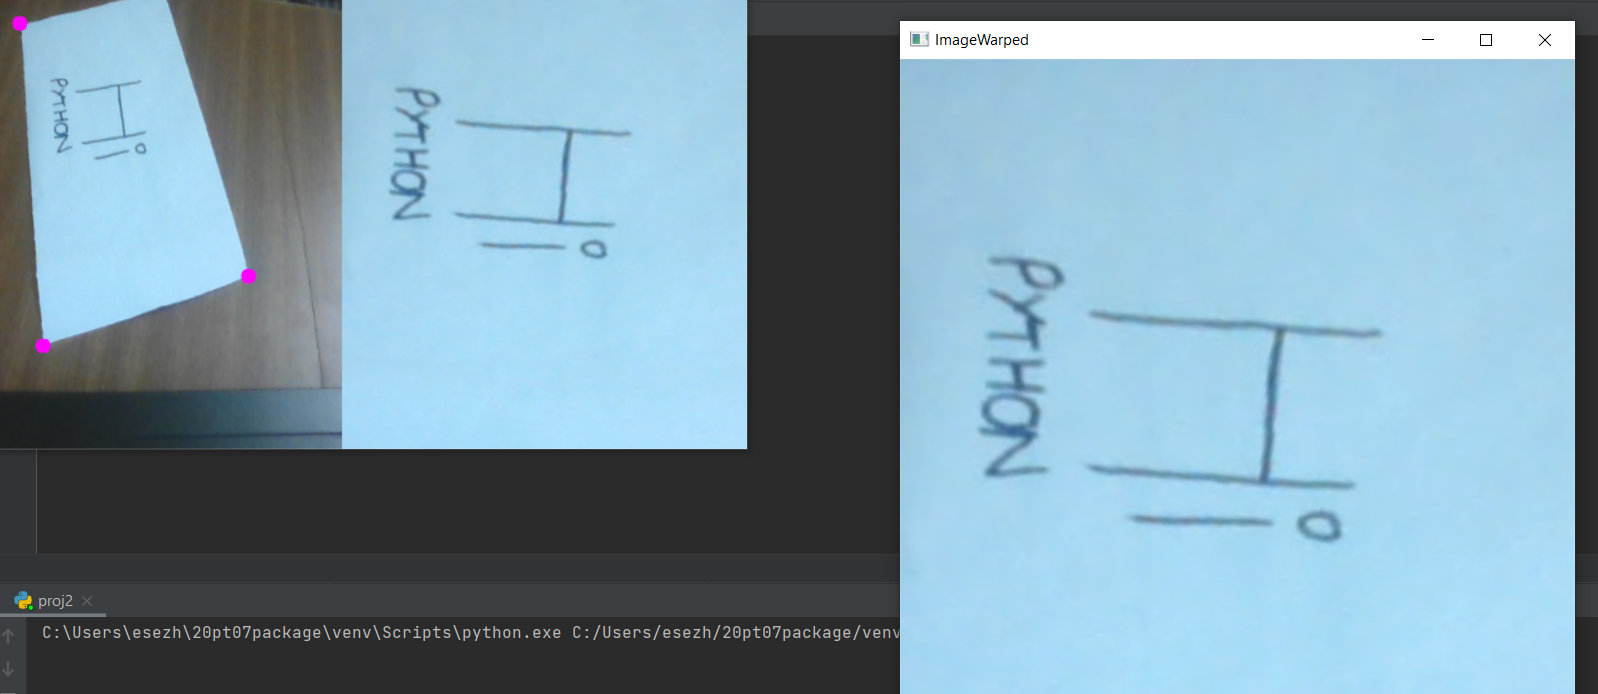 Hi
PYTHON
Hi
PYTHON
ImageWarped
Hi
PYTHON
proj2
C:\Users\esezh\20pt07package\venv\Scripts\python.exe C:/Users/esezh/20pt07package/venv